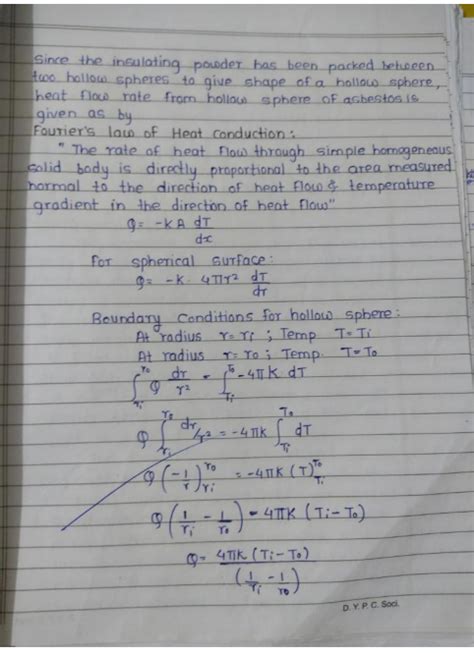 Since the insulating powder has been packed between
two hollow spheres to give shape of a hollow sphere,
heat flow rate from hollow sphere of asbestos is
given as by
Fourier's law of Heat Conduction:
" The rate of heat flow through simple homogeneous
solid body is directly proportional to the area measured
normal to the direction of heat flow & temperature
gradient in the direction of heat flow"
Q = -KA dT/dx
For spherical surface:
Q = -K. 4πr² dT/dr
Boundary Conditions for hollow sphere:
At radius r=ri ; Temp T=Ti
At radius r=ro ; Temp. T=To
∫_{ri}^{ro} Q dr/r² = ∫_{Ti}^{To} -4πK dT
Q ∫_{ri}^{ro} dr/r² = -4πK ∫_{Ti}^{To} dT
Q (-1/r)_{ri}^{ro} = -4πK (T)_{Ti}^{To}
Q (1/ri - 1/ro) = 4πK (Ti-To)
Q = 4πK (Ti-To) / (1/ri - 1/ro)
D. Y. P. C. Soci.